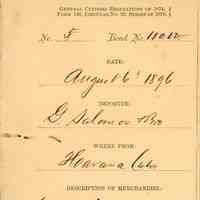 GENERAL CUSTOMS REGULATIONS OF 1874,
FORM 140, CIRCULAR NO. 20, SERIES OF 1876.
No. 5 Bond No. 11012
DATE:
August 6th 1896
IMPORTER:
G. Salomon & Bro
WHERE FROM:
Havana Cuba
DESCRIPTION OF MERCHANDISE: